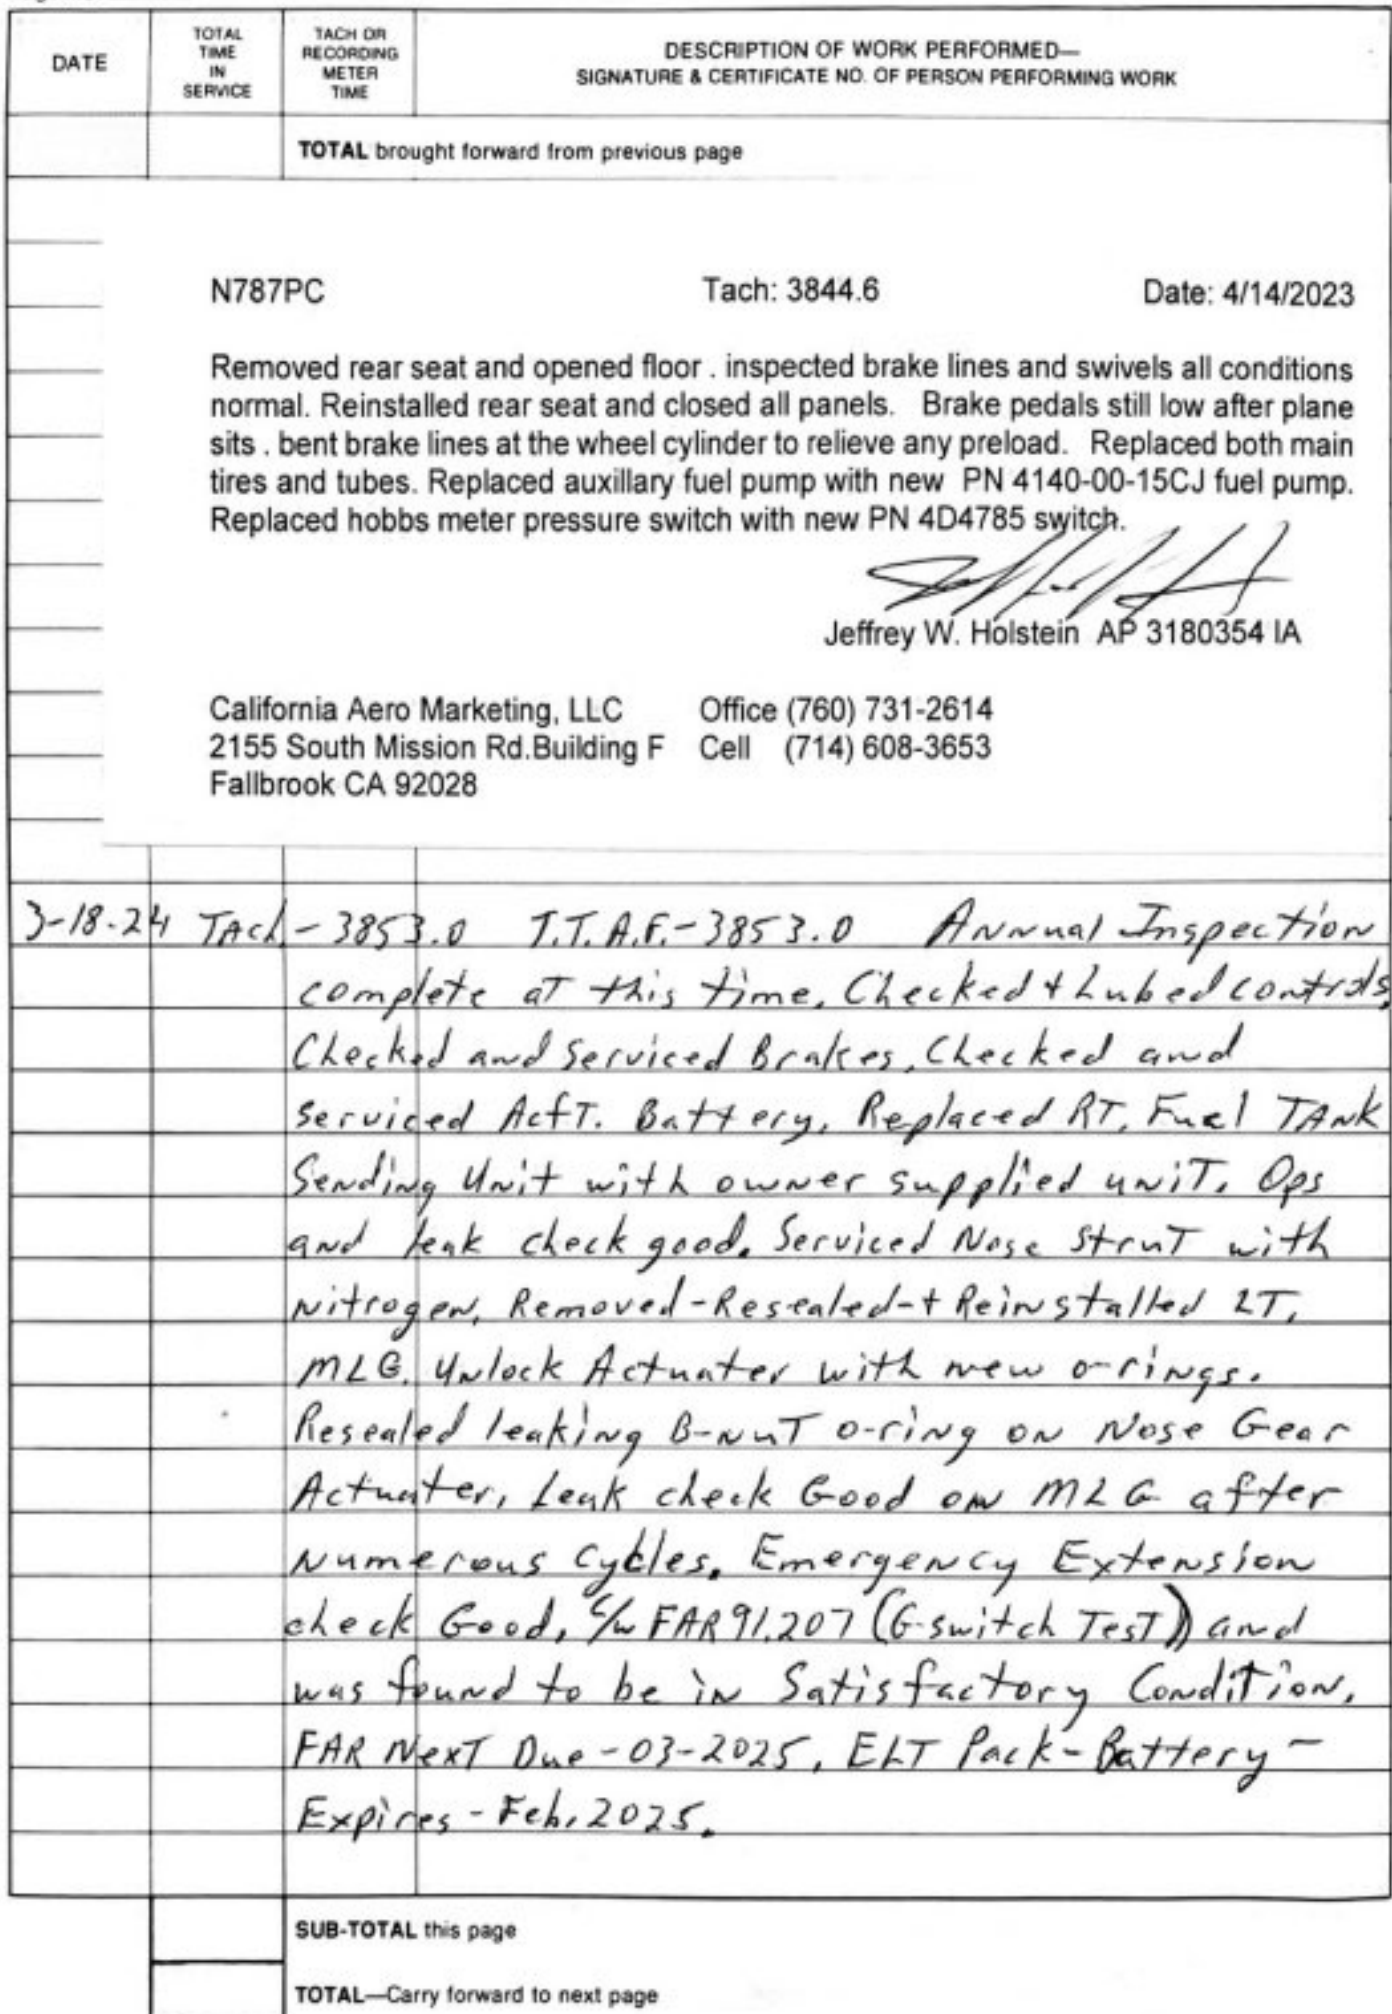 DATE
TOTAL
TIME
IN
SERVICE
TACH OR
RECORDING
METER
TIME
DESCRIPTION OF WORK PERFORMED—
SIGNATURE & CERTIFICATE NO. OF PERSON PERFORMING WORK
TOTAL brought forward from previous page
N787PC Tach: 3844.6 Date: 4/14/2023
Removed rear seat and opened floor . inspected brake lines and swivels all conditions
normal. Reinstalled rear seat and closed all panels. Brake pedals still low after plane
sits . bent brake lines at the wheel cylinder to relieve any preload. Replaced both main
tires and tubes. Replaced auxillary fuel pump with new PN 4140-00-15CJ fuel pump.
Replaced hobbs meter pressure switch with new PN 4D4785 switch.
Jeffrey W. Holstein AP 3180354 IA
California Aero Marketing, LLC Office (760) 731-2614
2155 South Mission Rd.Building F Cell (714) 608-3653
Fallbrook CA 92028
3-18-24 TAch - 3853.0 T.T.A.F.-3853.0 Annual Inspection
complete aT this time. Checked + Lubed controls,
Checked and Serviced Brakes, Checked and
Serviced AcfT. Battery, Replaced RT. Fuel TAnk
Sending Unit with owner supplied uniT. Ops
and leak check good. Serviced Nose StruT with
Nitrogen, Removed-Resealed-+ Reinstalled LT.
MLG. Unlock Actuater with new o-rings.
Resealed leaking B-nuT o-ring on Nose Gear
Actuater, Leak check Good on MLG after
Numerous Cycles. Emergency Extension
check Good, C/w FAR 91.207 (G-switch TesT) and
was found to be in Satisfactory Condition.
FAR NexT Due-03-2025, ELT Pack-Battery-
Expires-Feb, 2025.
SUB-TOTAL this page
TOTAL—Carry forward to next page